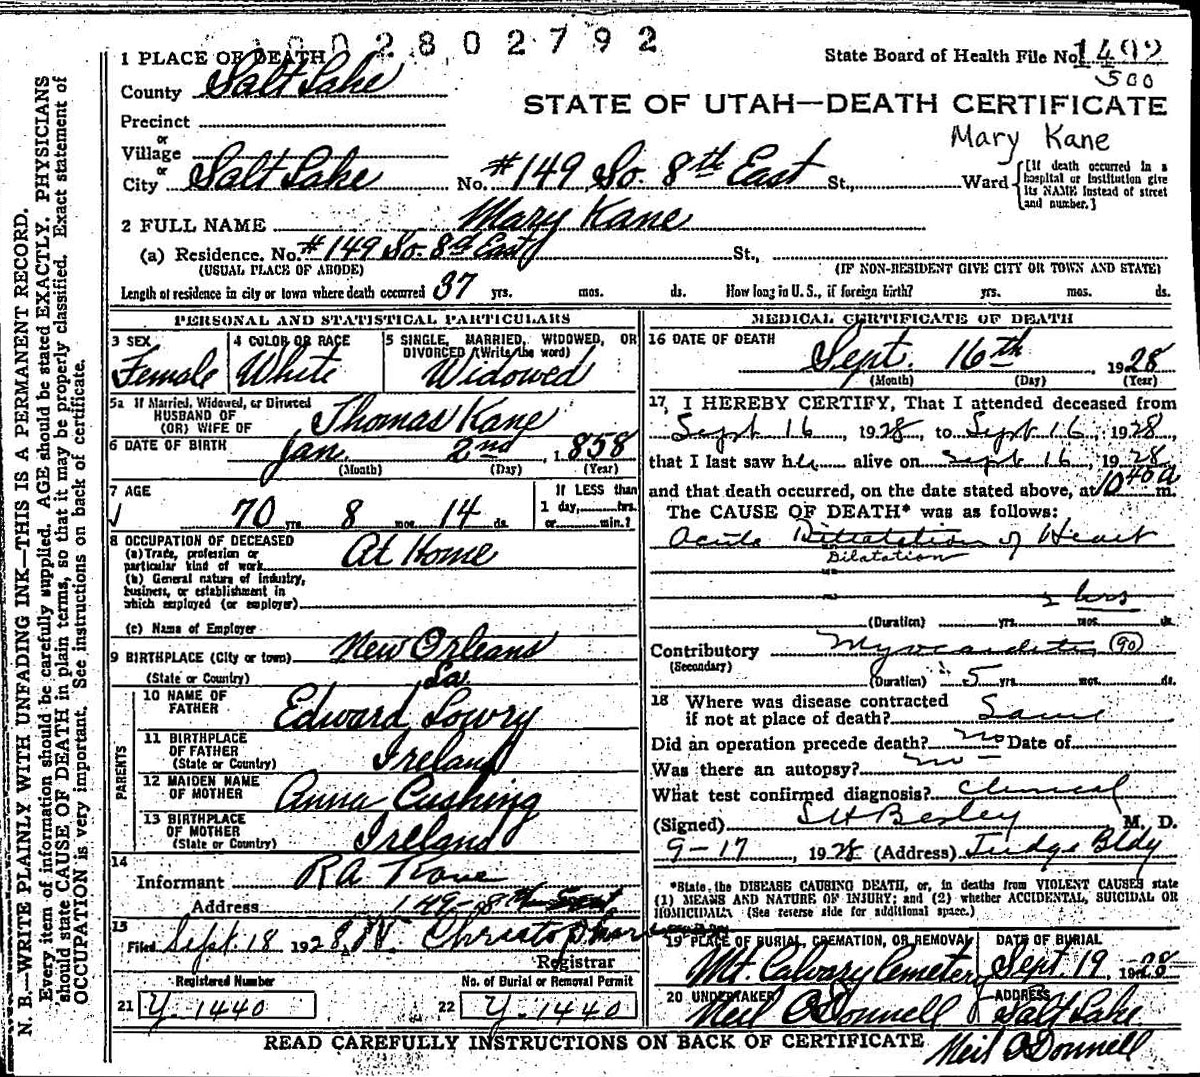 0 0 2 8 0 2 7 9 2
1 PLACE OF DEATH
State Board of Health File No. 1499
500
County Salt Lake
STATE OF UTAH—DEATH CERTIFICATE
Precinct
Mary Kane
or
Village
or
City Salt Lake No. #149 So. 8th East St., Ward
[If death occurred in a hospital or institution give its NAME instead of street and number.]
2 FULL NAME Mary Kane
(a) Residence. No. #149 So. 8th East St.,
(USUAL PLACE OF ABODE) (IF NON-RESIDENT GIVE CITY OR TOWN AND STATE)
Length of residence in city or town where death occurred 37 yrs. mos. ds. How long in U. S., if foreign birth? yrs. mos. ds.
PERSONAL AND STATISTICAL PARTICULARS
3 SEX Female
4 COLOR OR RACE White
5 SINGLE, MARRIED, WIDOWED, OR DIVORCED (Write the word) Widowed
5a If Married, Widowed, or Divorced
HUSBAND OF
(OR) WIFE OF Thomas Kane
6 DATE OF BIRTH Jan. 2nd, 1858
(Month) (Day) (Year)
7 AGE
70 yrs. 8 mos. 14 ds.
If LESS than
1 day, hrs.
or min.?
8 OCCUPATION OF DECEASED
(a) Trade, profession or
particular kind of work At Home
(b) General nature of industry,
business, or establishment in
which employed (or employer)
(c) Name of Employer
9 BIRTHPLACE (City or town) New Orleans
(State or Country) La.
PARENTS
10 NAME OF
FATHER Edward Lowry
11 BIRTHPLACE
OF FATHER
(State or Country) Ireland
12 MAIDEN NAME
OF MOTHER Anna Cushing
13 BIRTHPLACE
OF MOTHER
(State or Country) Ireland
14
Informant R A Kane
Address 149-8th East
15
Filed Sept. 18 1928, W. Christopherson
Registrar
Registered Number
21 Y-1440
No. of Burial or Removal Permit
22 Y-1440
MEDICAL CERTIFICATE OF DEATH
16 DATE OF DEATH
Sept. 16th, 1928
(Month) (Day) (Year)
17, I HEREBY CERTIFY, That I attended deceased from
Sept 16, 1928, to Sept 16, 1928,
that I last saw her alive on Sept 16, 1928
and that death occurred, on the date stated above, at 10 40 a m.
The CAUSE OF DEATH* was as follows:
Acute Dilatation of Heart
Dilatation
2 hrs
(Duration) yrs. mos. ds.
Contributory Myocarditis 90
(Secondary)
(Duration) 5 yrs. mos. ds.
18 Where was disease contracted
if not at place of death? Same
Did an operation precede death? no Date of
Was there an autopsy? no
What test confirmed diagnosis? Clinical
(Signed) S H Besley M. D.
9-17, 1928 (Address) Judge Bldg
*State the DISEASE CAUSING DEATH, or, in deaths from VIOLENT CAUSES state
(1) MEANS AND NATURE OF INJURY; and (2) whether ACCIDENTAL, SUICIDAL OR
HOMICIDAL. (See reverse side for additional space.)
19 PLACE OF BURIAL, CREMATION, OR REMOVAL Mt. Calvary Cemetery
DATE OF BURIAL Sept. 19, 1928
20 UNDERTAKER Neil O'Donnell
ADDRESS Salt Lake
READ CAREFULLY INSTRUCTIONS ON BACK OF CERTIFICATE
Neil O'Donnell
N. B.—WRITE PLAINLY WITH UNFADING INK—THIS IS A PERMANENT RECORD.
Every item of information should be carefully supplied. AGE should be stated EXACTLY. PHYSICIANS
should state CAUSE OF DEATH in plain terms, so that it may be properly classified. Exact statement of
OCCUPATION is very important. See instructions on back of certificate.